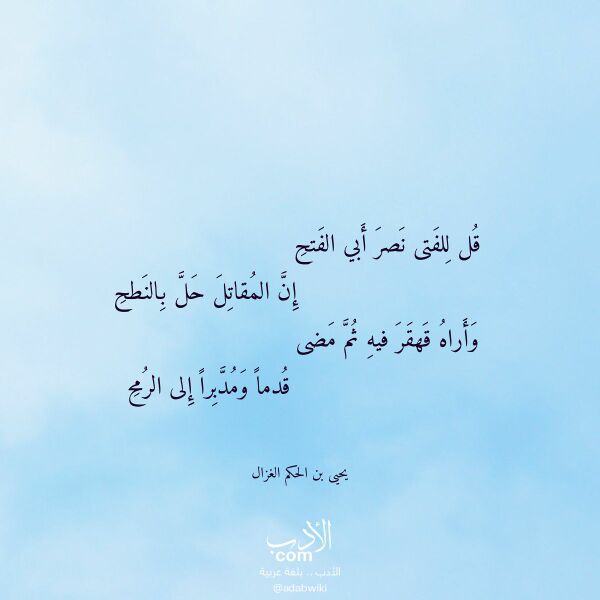 قُل لِلفَتى نَصرَ أَبي الفَتحِ
إِنَّ المُقاتِلَ حَلَّ بِالنَطحِ
وَأَراهُ قَهقَرَ فيهِ ثُمَّ مَضى
قُدماً وَمُدَّبِراً إِلى الرُمحِ
يحيى بن الحكم الغزال
الأدب
com
الأدب .. بلغة عربية
@adabwiki